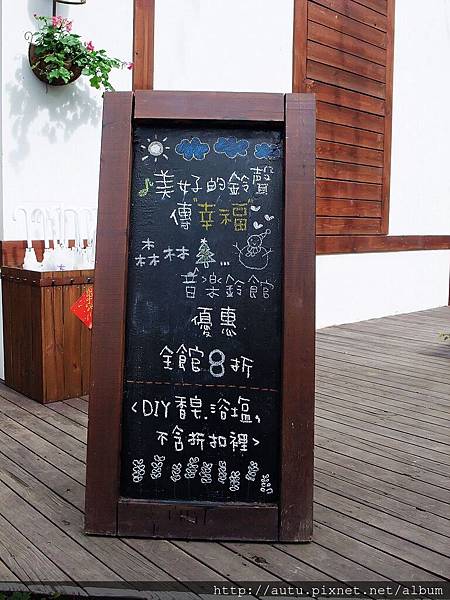 美好的鈴聲
傳"幸福"
森林...
音樂鈴館
優惠
全館8折
<DIY香皂.浴塩,
不含折扣裡>
http://autu.pixnet.net/album